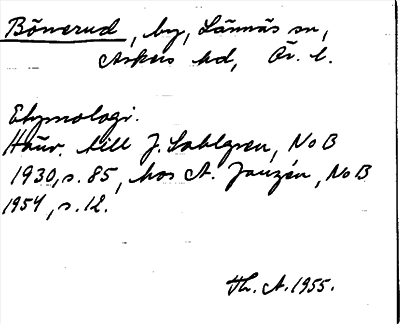 Bönerud, by, Lännäs sn,
Askers hd, Ör. l.
Etymologi.
Hänv. till J. Sahlgren, NoB
1930, s. 85, hos A. Janzén, NoB
1954, s. 12.
Th. A. 1955.